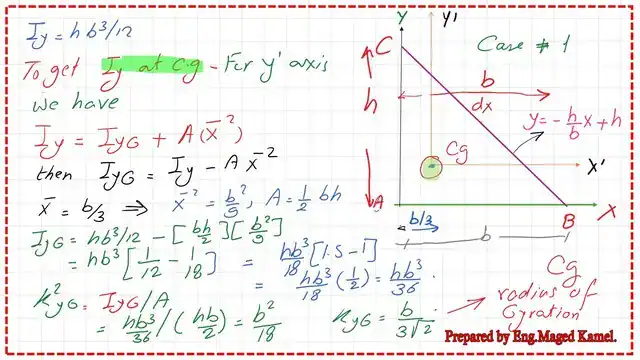 Iy = hb³/12
To get Iy at C.g - For y' axis
we have
Iy = IyG + A(x̄²)
then IyG = Iy - A x̄²
x̄ = b/3 ⇒ x̄² = b²/9, A = 1/2 bh
IyG = hb³/12 - [bh/2][b²/9]
= hb³[1/12 - 1/18] = hb³/18 [1.5-1]
= hb³/18 (1/2) = hb³/36.
K²yG = IyG/A
= hb³/36 / (hb/2) = b²/18
KyG = b/3√2
radius of
Gyration
Y
Y'
Case # 1
C
b
h
dx
y = -h/b x + h
Cg
X'
A
B
X
b/3
b
Cg
Prepared by Eng.Maged Kamel.